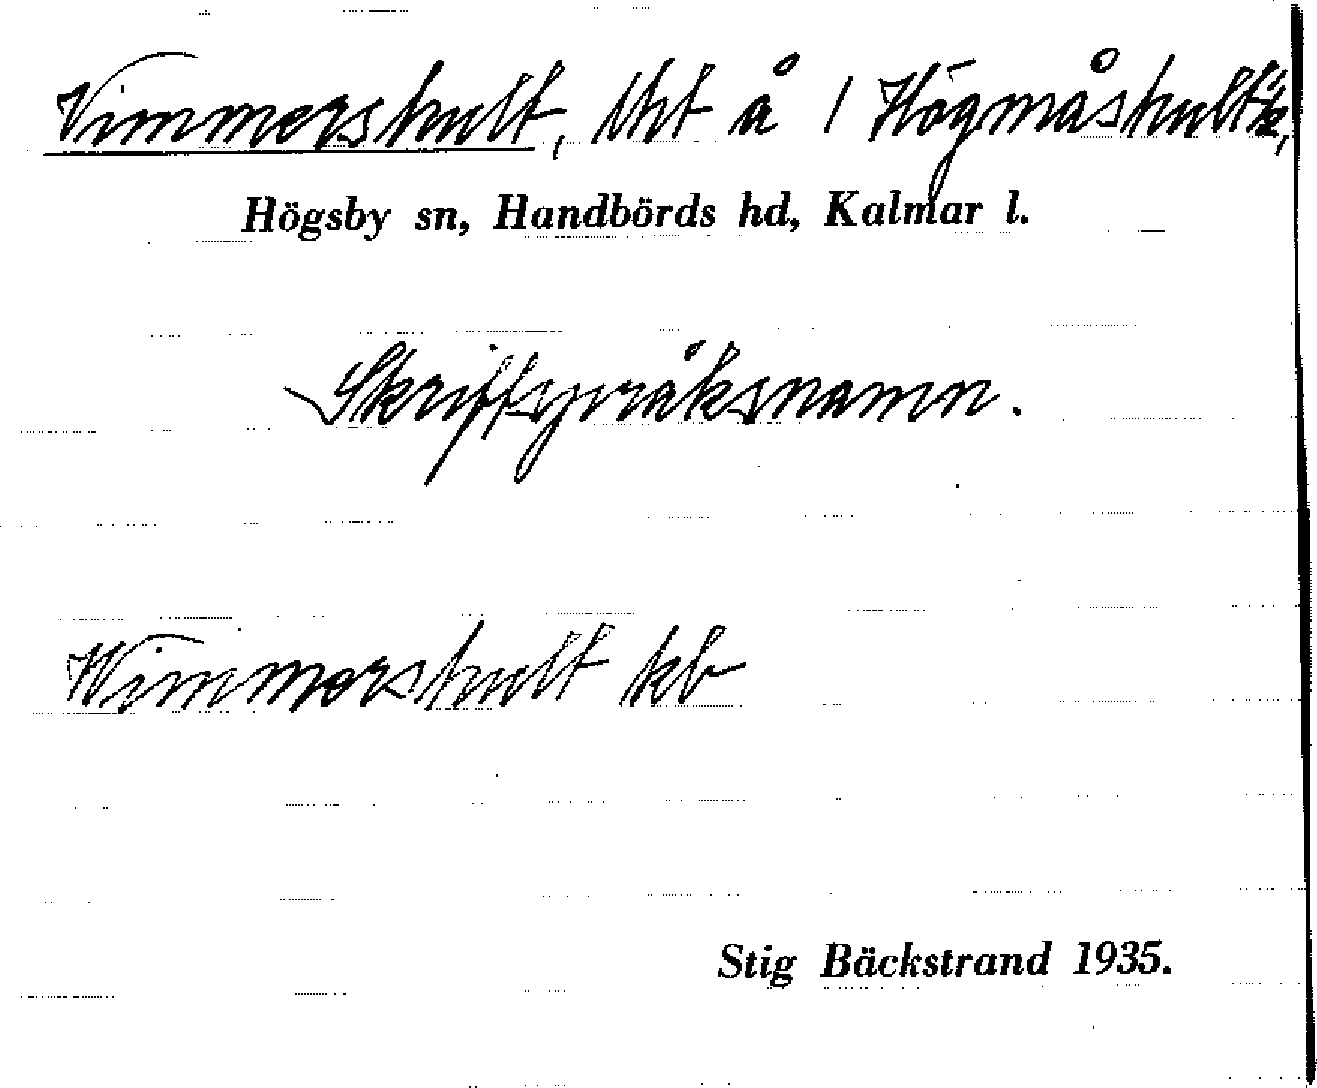 Vimmershult, tht å 1 Högmåshult
Högsby sn, Handbörds hd, Kalmar l.
Skriftspråksnamn.
Wimmershult kb
Stig Bäckstrand 1935.